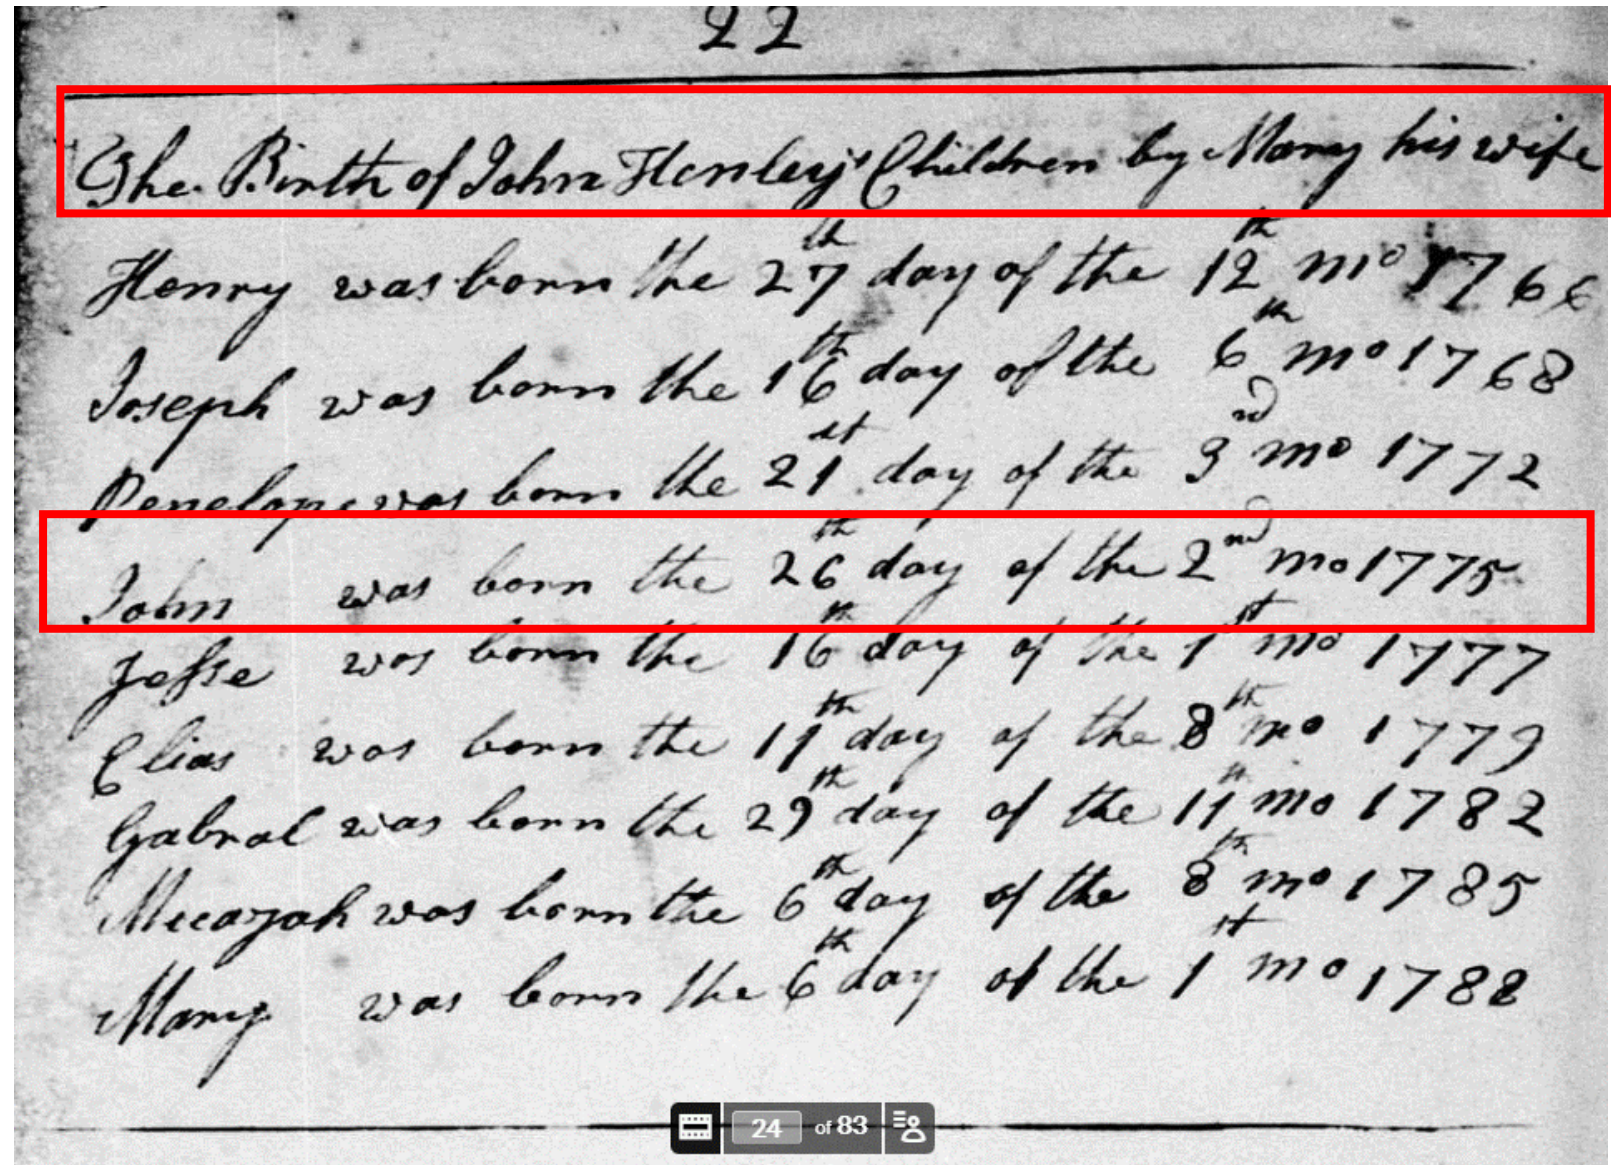 22
The Birth of John Henley's Children by Mary his wife
Henry was born the 27th day of the 12th mo 1766
Joseph was born the 16th day of the 6th mo 1768
Penelope was born the 21st day of the 3nd mo 1772
John was born the 26th day of the 2nd mo 1775
Jesse was born the 16th day of the 1st mo 1777
Elias was born the 11th day of the 8th mo 1779
Gabral was born the 29th day of the 11th mo 1782
Mecajah was born the 6th day of the 8th mo 1785
Mary was born the 6th day of the 1st mo 1788
24 of 83